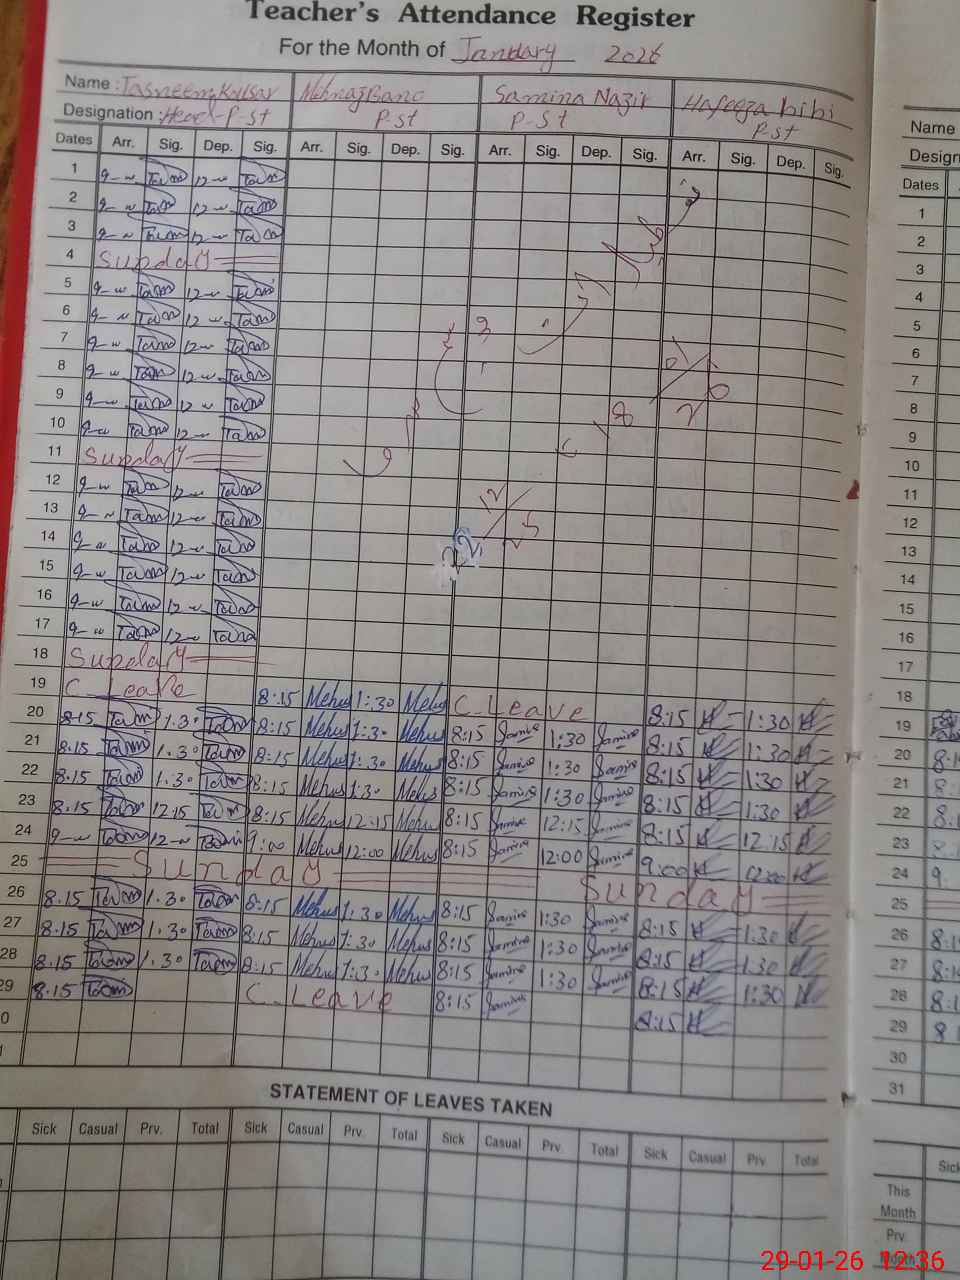 Teacher's Attendance Register
For the Month of January 2026
Name : Tasneem Kulsar Mehnaz Bano Samina Nazir Hafeeza bibi
Designation : Head-P-st P-st P-st P-st
Dates Arr. Sig. Dep. Sig. Arr. Sig. Dep. Sig. Arr. Sig. Dep. Sig. Arr. Sig. Dep. Sig.
1 9- Tasm 12- Tasm
2 9- Tasm 12- Tasm
3 9- Tasm 12- Tasm
4 Sunday
5 9- Tasm 12- Tasm
6 9- Tasm 12- Tasm
7 9- Tasm 12- Tasm
8 9- Tasm 12- Tasm
9 9- Tasm 12- Tasm
10 9- Tasm 12- Tasm
11 Sunday
12 9- Tasm 12- Tasm
13 9- Tasm 12- Tasm
14 9- Tasm 12- Tasm
15 9- Tasm 12- Tasm
16 9- Tasm 12- Tasm
17 9- Tasm 12- Tasm
18 Sunday
19 C. Leave 8:15 Mehns 1:30 Mehns C. Leave 8:15 1:30
20 8:15 Tasm 1.30 Tasm 8:15 Mehns 1:30 Mehns 8:15 Samina 1:30 Samina 8:15 1:30
21 8:15 Tasm 1.30 Tasm 8:15 Mehns 1:30 Mehns 8:15 Samina 1:30 Samina 8:15 1:30
22 8:15 Tasm 1.30 Tasm 8:15 Mehns 1:30 Mehns 8:15 Samina 1:30 Samina 8:15 1:30
23 8:15 Tasm 12:15 Tasm 8:15 Mehns 12:15 Mehns 8:15 Samina 12:15 Samina 8:15 12:15
24 9- Tasm 12- Tasm 9:00 Mehns 12:00 Mehns 8:15 Samina 12:00 Samina 9:00 12:00
25 Sunday Sunday
26 8.15 Tasm 1.30 Tasm 8:15 Mehns 1:30 Mehns 8:15 Samina 1:30 Samina 8:15 1:30
27 8.15 Tasm 1.30 Tasm 8:15 Mehns 1:30 Mehns 8:15 Samina 1:30 Samina 8:15 1:30
28 8.15 Tasm 1.30 Tasm 8:15 Mehns 1:30 Mehns 8:15 Samina 1:30 Samina 8:15 1:30
29 8:15 Tasm C. Leave 8:15 Samina 8:15
0
STATEMENT OF LEAVES TAKEN
Sick Casual Prv. Total Sick Casual Prv. Total Sick Casual Prv. Total Sick Casual Prv. Total
Name
Dates
1
2
3
4
5
6
7
8
9
10
11
12
13
14
15
16
17
18
19
20
21
22
23
24 9.
25
26
27
28
29
30
31
Sick
This
Month
Prv.
Month
29-01-26 12:36